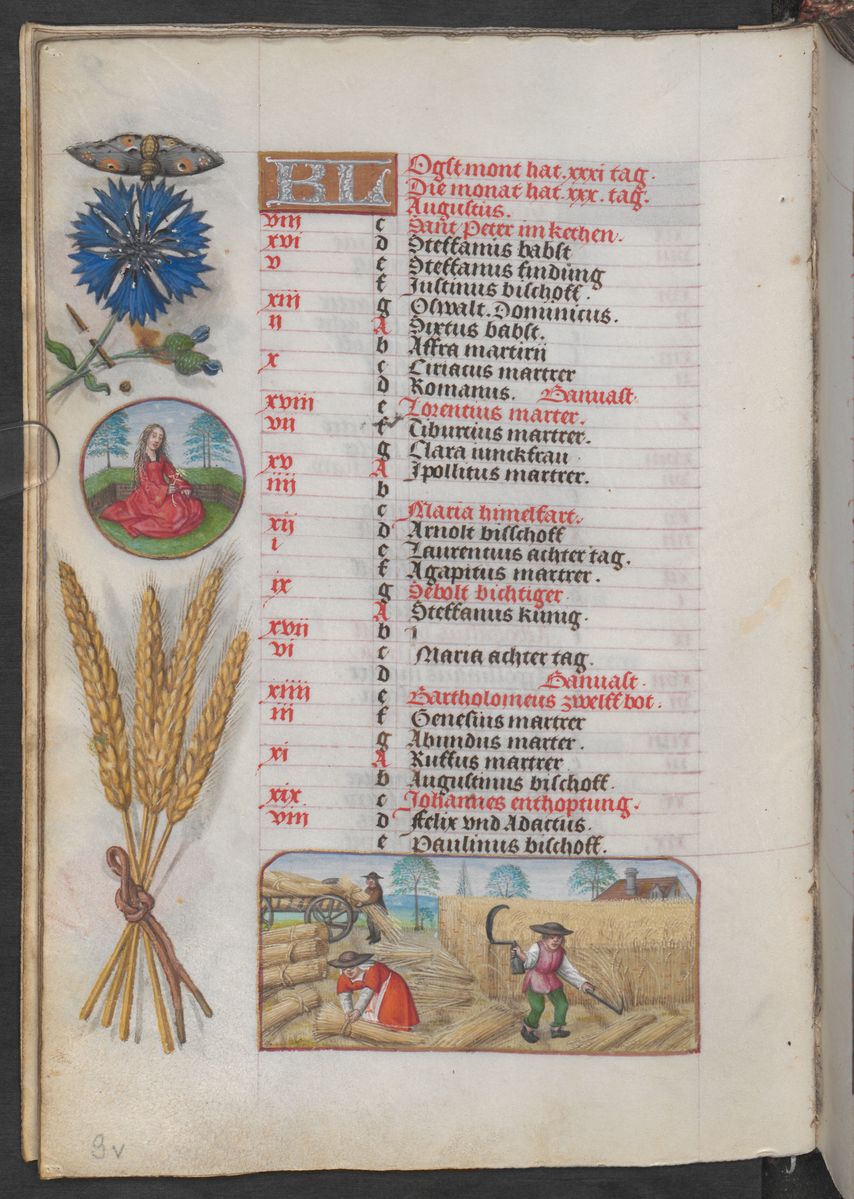 KL Ogst mont hat .xxxi tag.
Die monat hat .xxx. tag.
Augustus.
viii c Sant Peter im kethen.
xvi d Steffanus babst
v e Steffanus findung
f Iustinus bischoff.
xiii g Oswalt. Dominicus.
ii A Sixtus babst.
b Affra martirii
x c Ciriacus martrer
d Romanus. Banuast.
xviii e Lorentius marter.
vii f Tiburtius martrer.
g Clara iunckfrau
xv A Ipollitus martrer.
iiii b
c Maria himelfart.
xii d Arnolt bisschoff
i e Laurentius achter tag.
f Agapitus martrer.
ix g Sebolt bichtiger
A Steffanus kunig.
xvii b i
vi c Maria achter tag.
d Banuast.
xiiii e Bartholomeus zwelff bot.
iii f Genesius martrer
g Abundus marter.
xi A Ruffus martrer
b Augustinus bischoff.
xix c Johannes enthoptung.
viii d Felix vnd Adactus.
e Paulinus bischoff.
9v